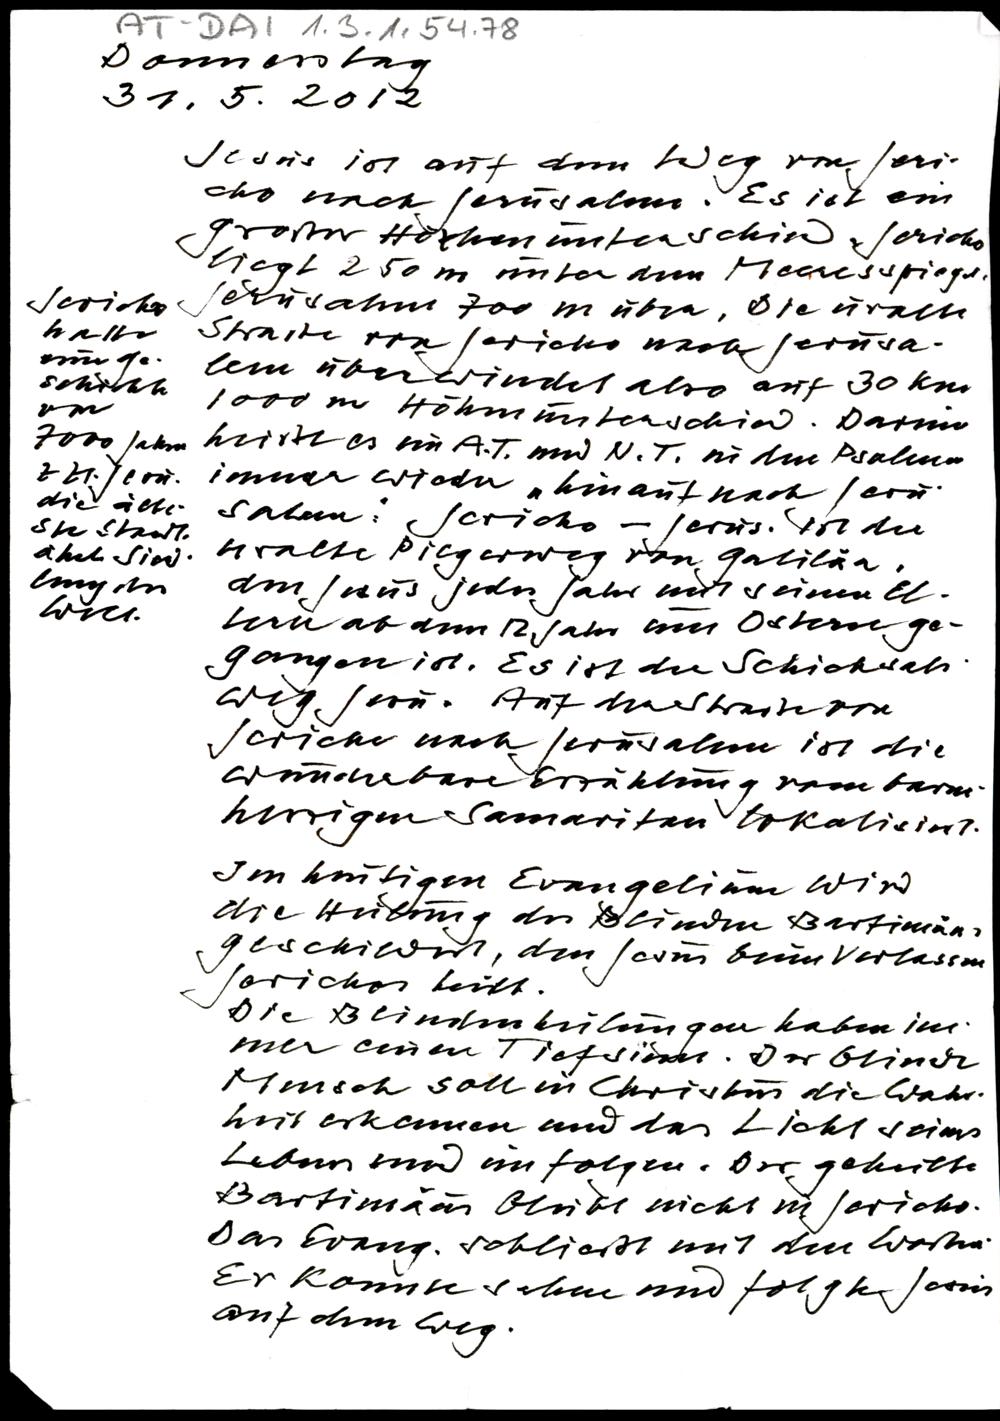 AT-DAI 1.3.1.54.78
Donnerstag
31. 5. 2012
Jesus ist auf dem Weg von Jeri-
cho nach Jerusalem. Es ist ein
großer Höhenunterschied. Jericho
liegt 250 m unter dem Meeresspiegel.
Jerusalem 700 m über. Die uralte
Straße von Jericho nach Jerusa-
lem überwindet also auf 30 km
1000 m Höhenunterschied. Darum
heißt es im A.T. und N.T. in den Psalmen
immer wieder "hinauf nach Jeru-
salem". Jericho – Jerus. ist der
uralte Pilgerweg von Galiläa,
den Jesus jedes Jahr mit seinen El-
tern ab dem 12. Jahr um Ostern ge-
gangen ist. Es ist der Schicksals-
weg Jesu. Auf der Straße von
Jericho nach Jerusalem ist die
wunderbare Erzählung vom barm-
herzigen Samaritan lokalisiert.
Jericho
hatte
eine Ge-
schichte
von
7000 Jahren
z. Zt. Jesu.
die älte-
ste Stadt-
ähnl. Sied-
lung der
Welt.
Im heutigen Evangelium wird
die Heilung des Blinden Bartimäus
geschildert, den Jesus beim Verlassen
Jerichos heilt.
Die Blindenheilungen haben im-
mer einen Tiefsinn. Der blinde
Mensch soll in Christus die Wahr-
heit erkennen und das Licht seines
Lebens und ihm folgen. Der geheilte
Bartimäus bleibt nicht in Jericho.
Das Evang. schließt mit den Worten
Er konnte sehen und folgte Jesus
auf dem Weg.